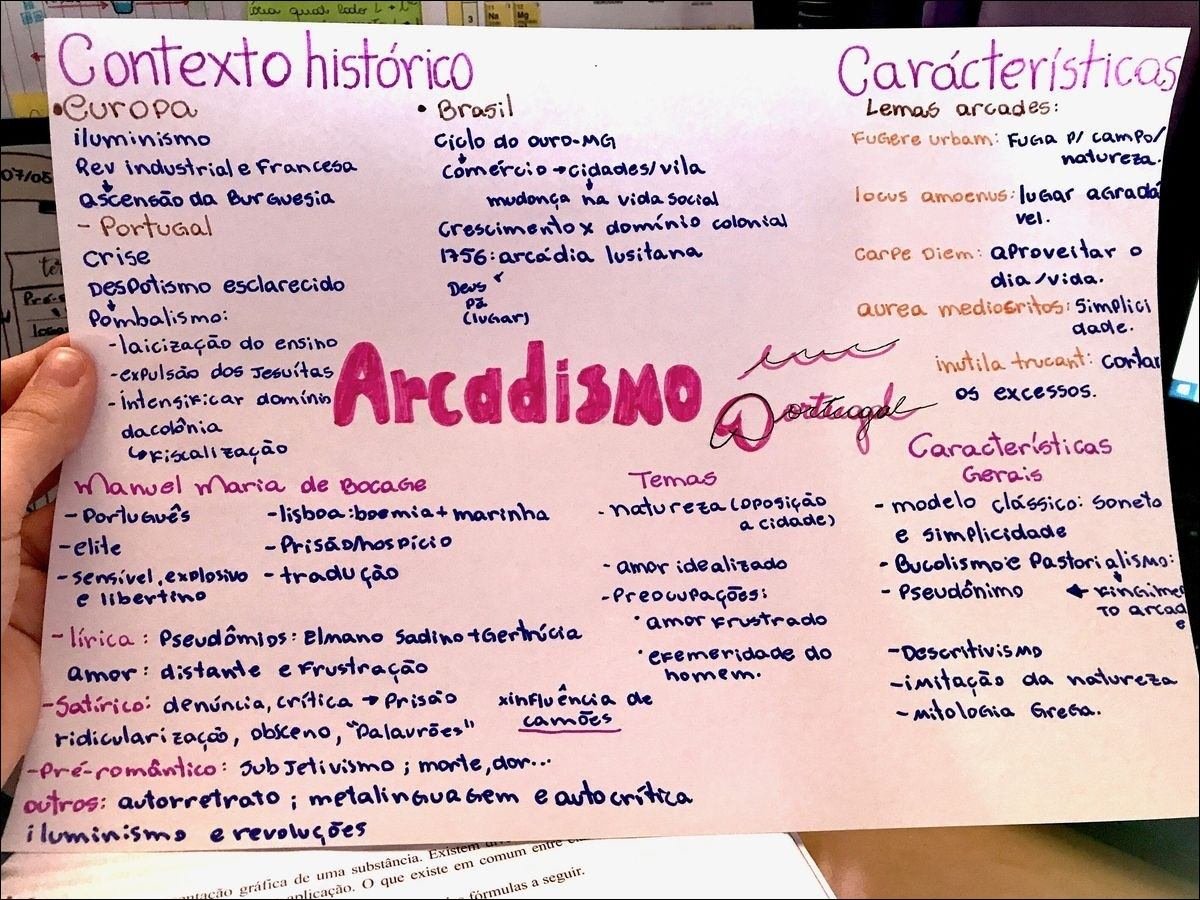 Contexto histórico
• Europa
iluminismo
Rev industrial e Francesa
ascensão da Burguesia
- Portugal
Crise
Despotismo esclarecido
Pombalismo:
- laicização do ensino
- expulsão dos Jesuítas
- intensificar domínio
da colônia
↳ Fiscalização
• Brasil
Ciclo do ouro-MG
Comércio → cidades/vila
mudança na vida social
Crescimento x domínio colonial
1756: arcádia lusitana
Deus
Pã
(lugar)
Carácterísticas
Lemas arcades:
Fugere urbam: Fuga p/ campo/
natureza.
locus amoenus: lugar agradá
vel.
Carpe Diem: aproveitar o
dia/vida.
aurea mediosritos: Simplici
dade.
inutila trucant: cortar
os excessos.
Arcadismo em
Portugal
Manuel Maria de Bocage
- Português
- elite
- sensível, explosivo
e libertino
- lisboa: boemia + marinha
- Prisão/hospício
- tradução
- lírica: Pseudômios: Elmano Sadino + Gertrúcia
amor: distante e Frustração
- Satírico: denúncia, crítica → Prisão
ridicularização, obsceno, "Palavrões"
xinfluência de
camões
- Pré-romântico: subjetivismo; morte, dor...
outros: autorretrato; metalinguagem e autocrítica
iluminismo e revoluções
Temas
- natureza (oposição
a cidade)
- amor idealizado
- Preocupações:
• amor Frustrado
• efemeridade do
homem.
Características
Gerais
- modelo clássico: soneto
e simplicidade
- Bucolismo e Pastorialismo:
- Pseudônimo ← Fingime
to arcad
e
- Descritivismo
- imitação da natureza
- mitologia Grega.
ntação gráfica de uma substância. Existem
aplicação. O que existe em comum entre
fórmulas a seguir.